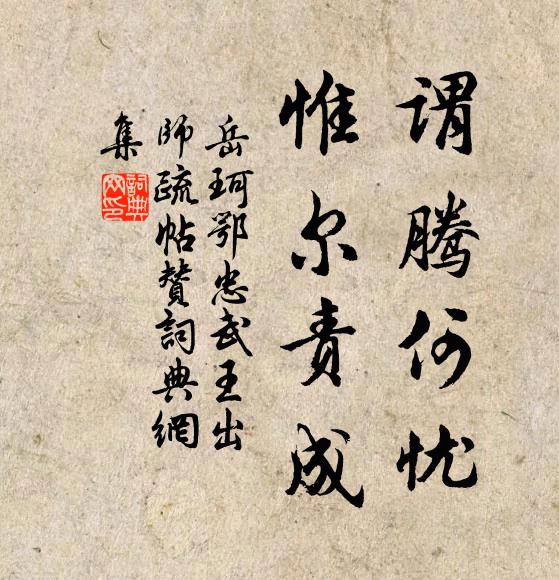 谓腾何忧
惟尔责成
岳珂鄂忠武王出
师疏帖赞词典網
集
詞典
网印